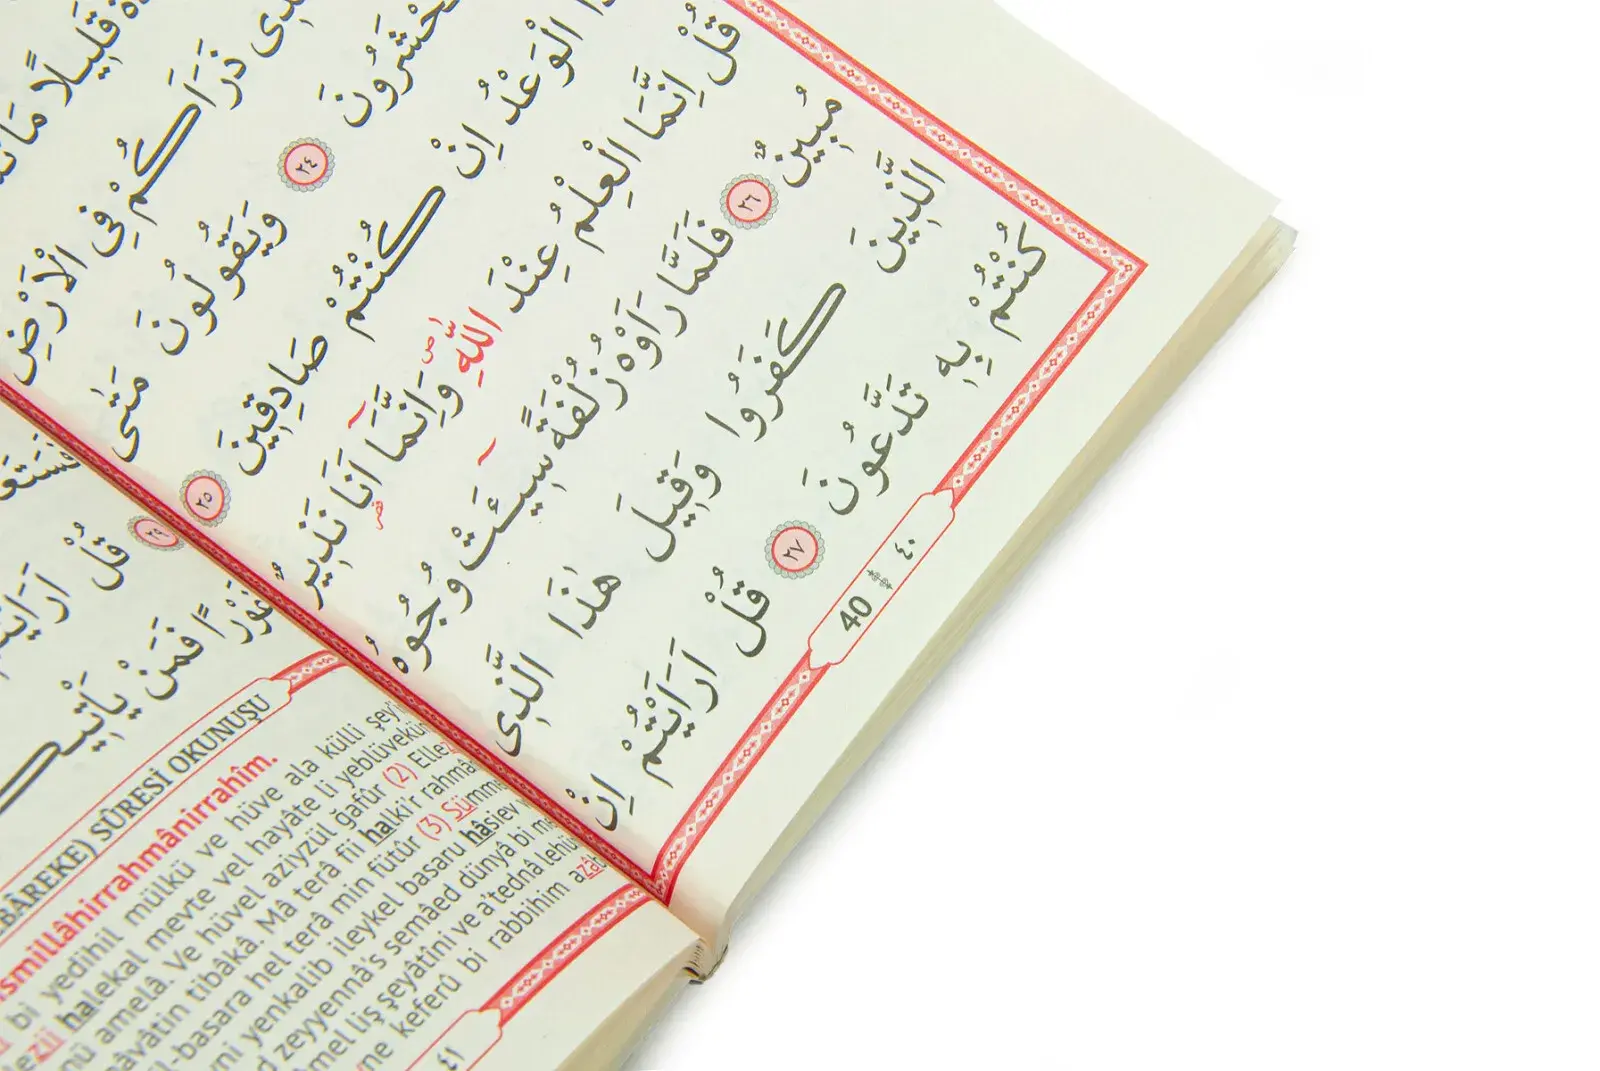 قَلِيلًا مَا
ذَرَاَكُمْ فِى الْاَرْضِ
ـحْشَرُونَ ٢٤ وَيَقُولُونَ مَتٰى
الْوَعْدُ اِنْ كُنْتُمْ صَادِقِينَ ٢٥
قُلْ اِنَّمَا الْعِلْمُ عِنْدَ اللّٰهِ ص وَاِنَّمَا اَنَا نَذِيرٌ
مُبِينٌ ٢٦ فَلَمَّا رَاَوْهُ زُلْفَةً سِيئَتْ وُجُوهُ
الَّذِينَ كَفَرُوا وَقِيلَ هٰذَا الَّذِى
كُنْتُمْ بِهِ تَدَّعُونَ ٢٧ قُلْ اَرَاَيْتُمْ اِنْ
40 ٤٠
فَسَتَعْـ
٢٩ قُلْ اَرَاَيْتُـ
غَوْرًا فَمَنْ يَاْتِيكُـ
BÂREKE) SÛRESİ OKUNUŞU
smillâhirrahmânirrahîm.
bi yedihil mülkü ve hüve ala külli şey'i
lezii halekal mevte vel hayâte li yeblüveküm
amelâ. Ve hüvel aziyzül ğafûr (2) Ellez
mâvâtin tibâkâ. Mâ terâ fii halki'r rahmâ
il-basara hel terâ min fütûr (3) Sümme
ni yenkalib ileykel basaru hâsiev
d zeyyennâ's semâed dünyâ bi me
mel liş şeyâtîni ve a'tednâ lehüm
ne keferû bi rabbihim azâb
٤١